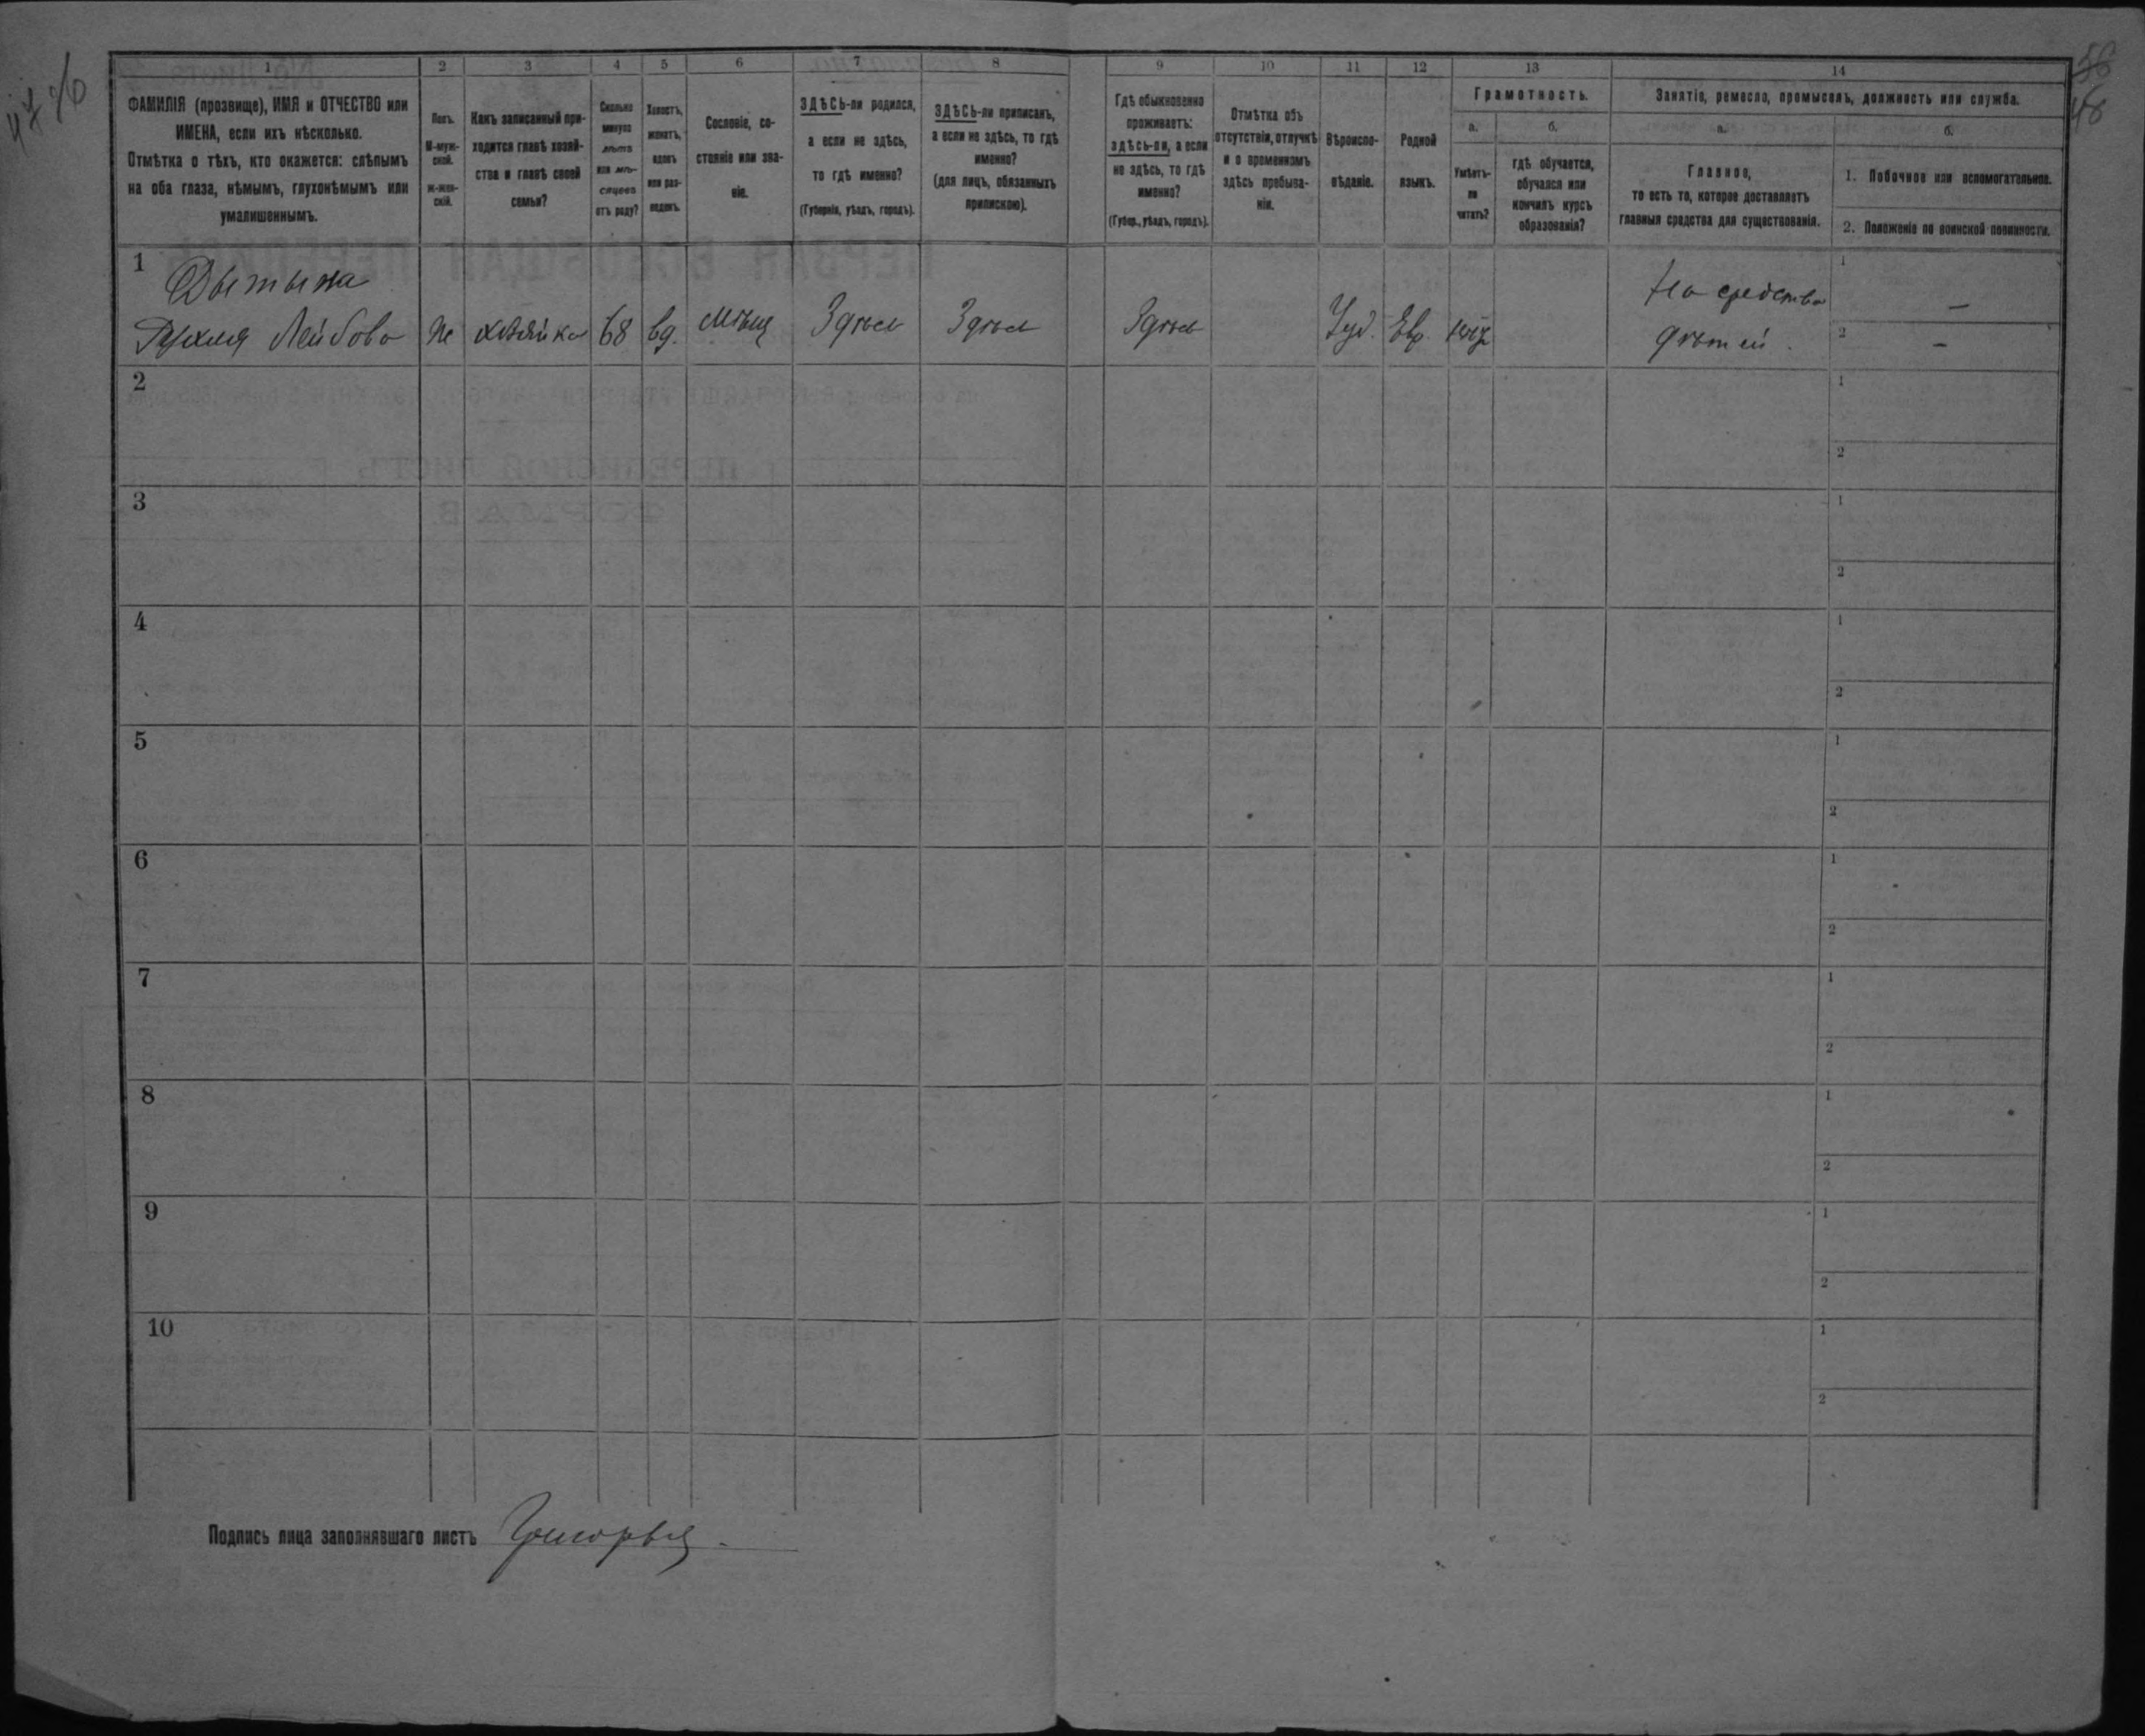 1
2
3
4
5
6
7
8
9
10
11
12
13
14
ФАМИЛІЯ (прозвище), ИМЯ и ОТЧЕСТВО или
ИМЕНА, если ихъ нѣсколько.
Отмѣтка о тѣхъ, кто окажется: слѣпымъ
на оба глаза, нѣмымъ, глухонѣмымъ или
умалишеннымъ.
Полъ.
М-муж-
ской.
ж-жен-
скій.
Какъ записанный при-
ходится главѣ хозяй-
ства и главѣ своей
семьи?
Сколько
минуло
лѣтъ
или мѣ-
сяцевъ
отъ роду?
Холостъ,
женатъ,
вдовъ
или раз-
веденъ.
Сословіе, со-
стояніе или зва-
ніе.
ЗДѢСЬ-ли родился,
а если не здѣсь,
то гдѣ именно?
(Губернія, уѣздъ, городъ).
ЗДѢСЬ-ли приписанъ,
а если не здѣсь, то гдѣ
именно?
(для лицъ, обязанныхъ
припискою).
Гдѣ обыкновенно
проживаетъ:
здѣсь-ли, а если
не здѣсь, то гдѣ
именно?
(Губер., уѣздъ, городъ).
Отмѣтка объ
отсутствіи, отлучкѣ
и о временномъ
здѣсь пребыва-
ніи.
Вѣроиспо-
вѣданіе.
Родной
языкъ.
Грамотность.
а.
Умѣетъ-
ли
читать?
б.
гдѣ обучается,
обучался или
кончилъ курсъ
образованія?
Занятіе, ремесло, промыселъ, должность или служба.
а.
Главное,
то есть то, которое доставляетъ
главныя средства для существованія.
б.
1. Побочное или вспомогательное.
2. Положеніе по воинской повинности.
1
Рухля Лейбова
ж
хозяйка
68
вд.
мѣщ
Здѣсь
Здѣсь
Здѣсь
Іуд.
Евр.
нѣт
На средства
дѣтей.
1 –
2 –
2
1
2
3
1
2
4
1
2
5
1
2
6
1
2
7
1
2
8
1
2
9
1
2
10
1
2
Подпись лица заполнявшаго листъ